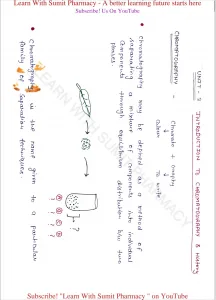 Learn With Sumit Pharmacy - A better learning future starts here
Subscribe! Us On YouTube
UNIT - I INTRODUCTION TO CHROMATOGRAPHY &
CHROMATOGRAPHY - Chromate + Graphy
↓ ↓
Colour To write
• Chromatography may be defined as a method of
separating a mixture of components into individual
components through equilibrium distribution b/w two
phases.
?
• Chromatography is the name given to a particular
family of separation techniques.
LEARN WITH SUMIT PHARMACY
Subscribe! "Learn With Sumit Pharmacy " on YouTube